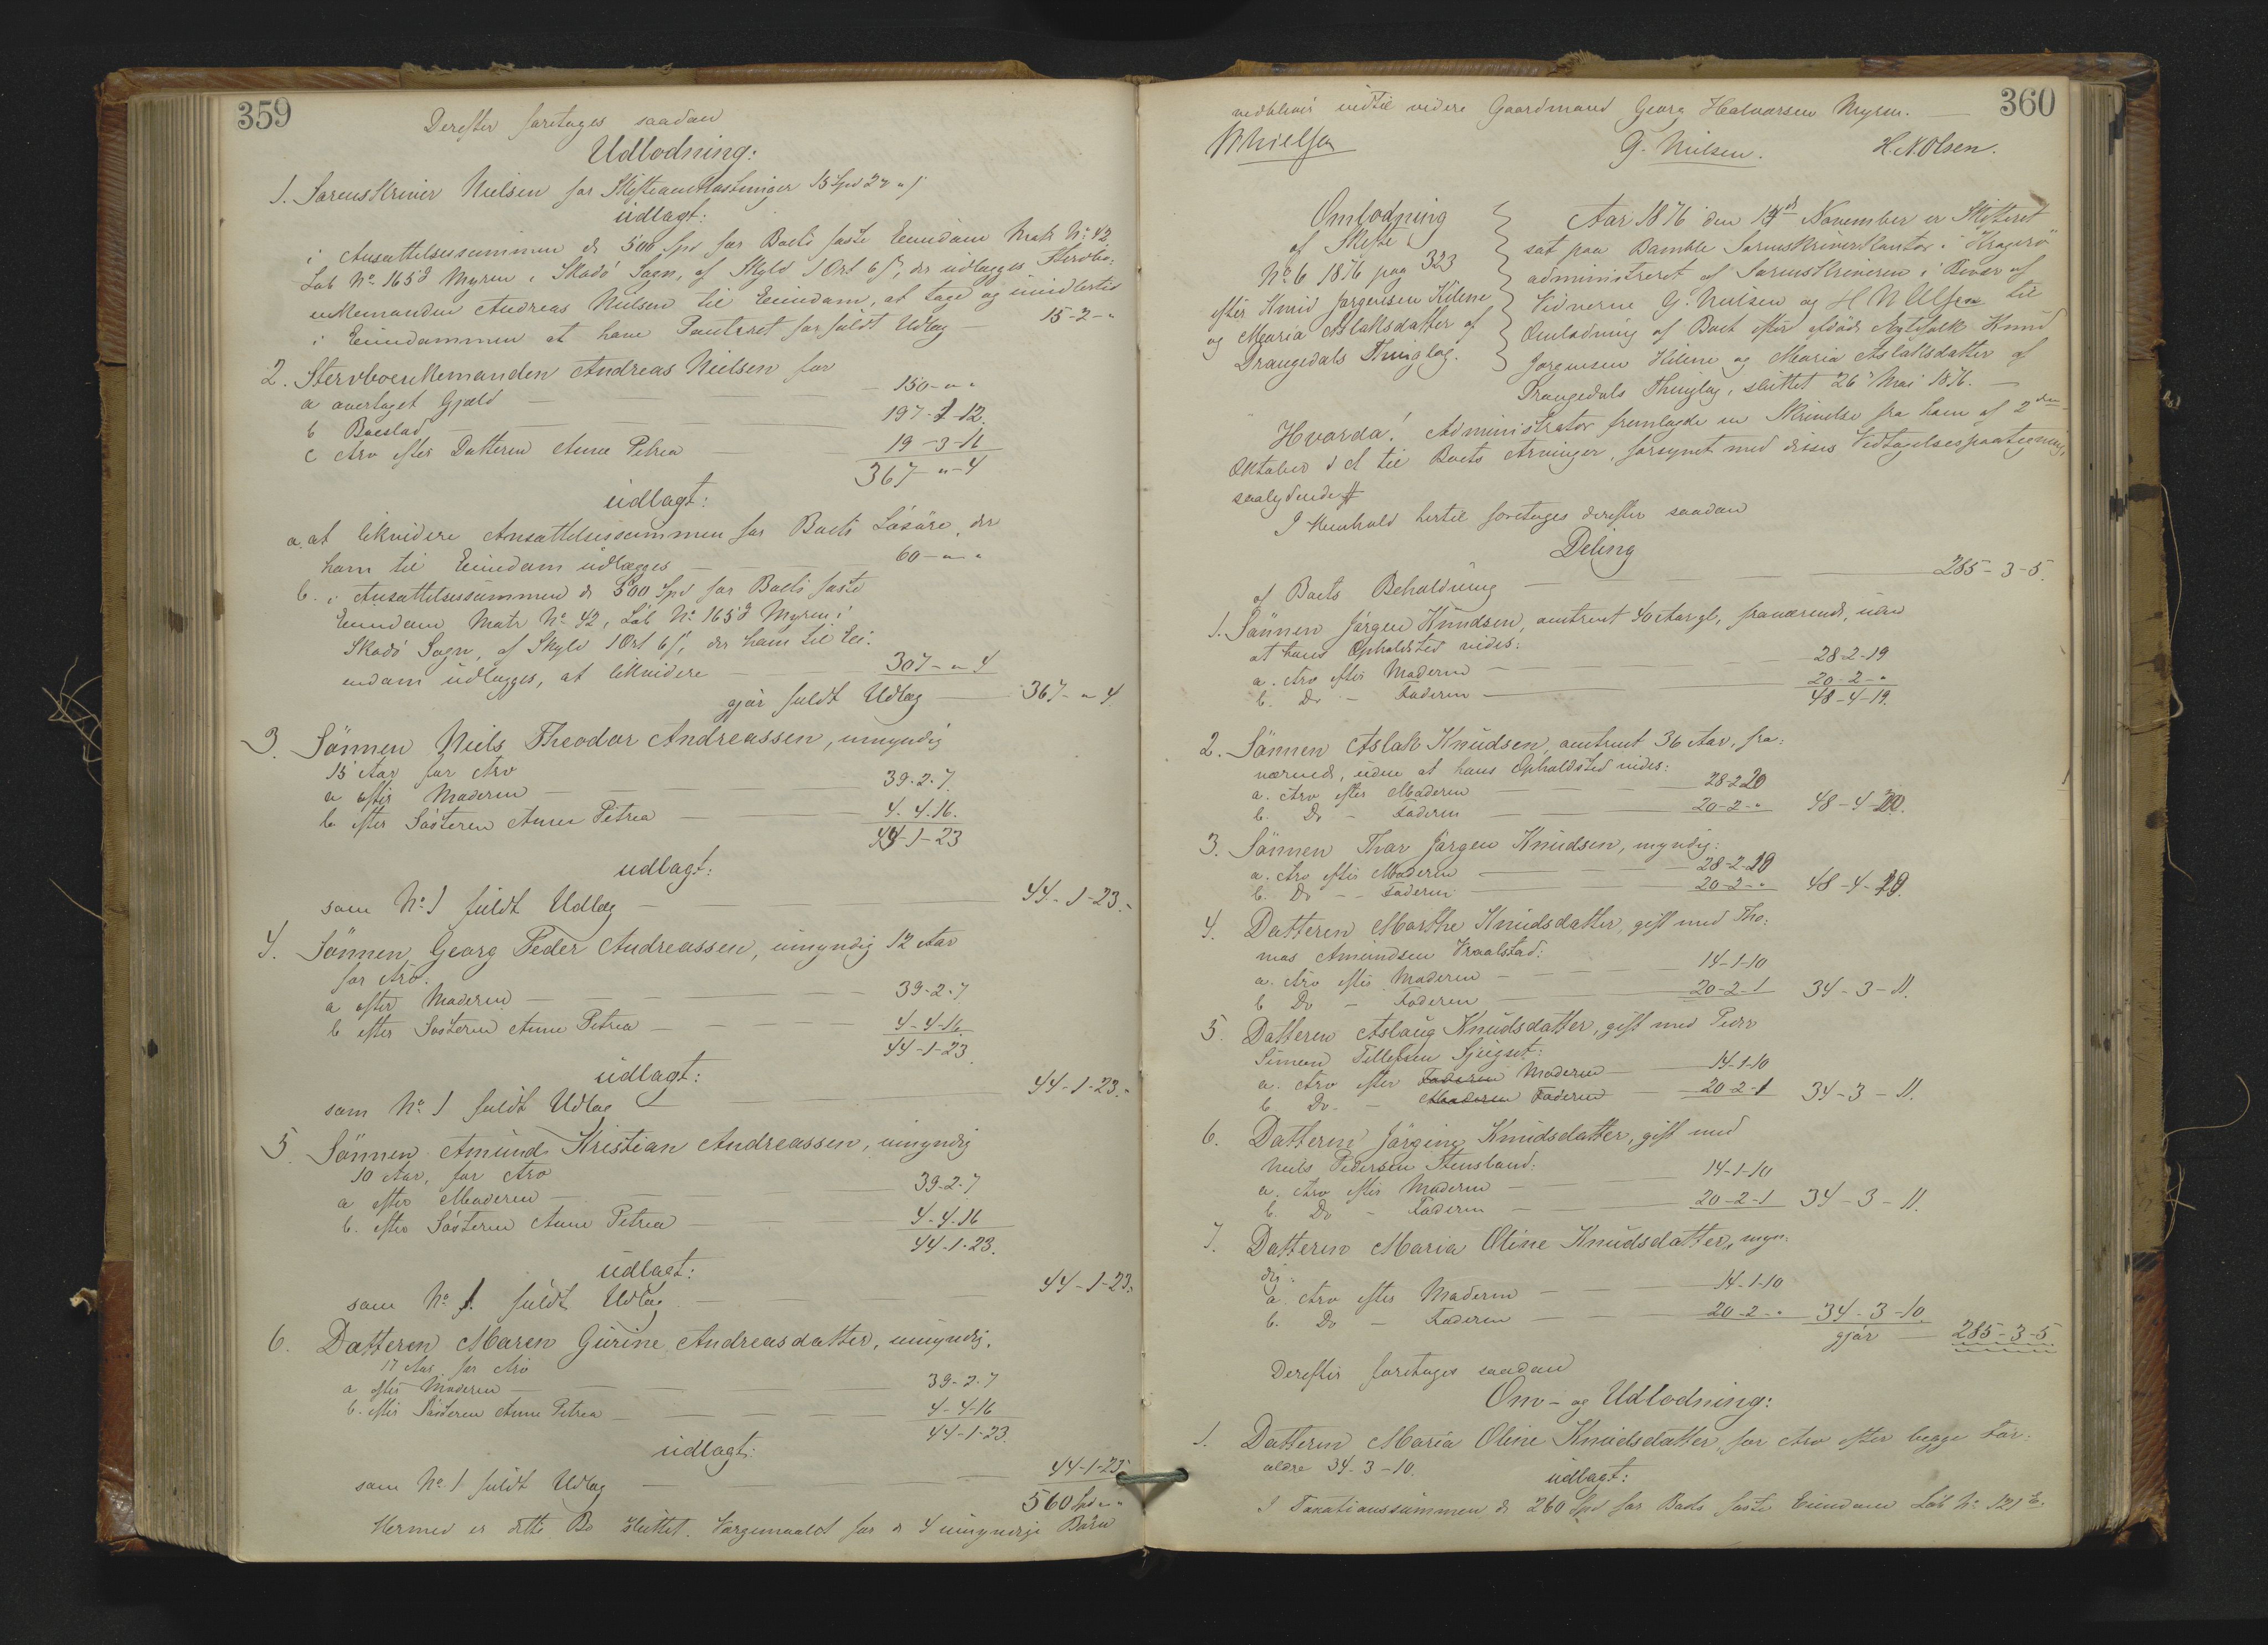 359
Derefter foretages saadan
Udlodning:
1. Sorenskriver Nielsen for Skifteomkostninger 15 Spd 2 - " ẞ
udlagt:
i Ansættelsessummen de 500 Spd for Boets faste Eiendom Matr No 42
Løb No 165 d Myren i Skadö Sogn, af Skyld 1 Ort 6 ß, der udlægges Stervbo-
enkemanden Andreas Nielsen til Eiendom, at tage og imidlertid
i Eiendommen at have Panteret for fuldt Udlæg — 15-2-"
2. Stervboenkemanden Andreas Nielsen for
a overtaget Gjæld — 150-"-"
b Boeslod — 197-1-12.
c Arv efter Datteren Anne Petrea — 19-3-16
367-"-4
udlagt:
a. at likvidere Ansættelsessummen for Boets Løsöre, der
ham til Eiendom udlægges — 60-"-"
b. i Ansættelsessummen de 500 Spd for Boets faste
Eiendom Matr No 42, Løb No 165 d Myren i
Skadö Sogn, af Skyld 1 Ort 6 ß, der ham til Ei-
endom udlægges, at likvidere — 307-"-4
gjør fuldt Udlæg — 367-"-4.
3. Sönnen Niels Theodor Andreassen, umyndig
15 Aar for Arv
a efter Moderen — 39-2-7.
b. efter Søsteren Anne Petrea — 4-4-16.
44-1-23
udlagt:
som No 1 fuldt Udlæg — 44-1-23.
4. Sönnen Georg Peder Andreassen, umyndig 12 Aar
for Arv.
a efter Moderen — 39-2-7
b efter Søsteren Anne Petrea — 4-4-16.
44-1-23
udlagt:
som No 1 fuldt Udlæg — 44-1-23.
5. Sönnen Amund Kristian Andreassen, umyndig
10 Aar, for Arv
a efter Moderen — 39-2-7
b. efter Søsteren Anne Petrea — 4-4-16
44-1-23.
udlagt:
som No 1. fuldt Udlæg — 44-1-23.
6. Datteren Maren Gurine Andreasdatter, umyndig,
17 Aar for Arv
a efter Moderen — 39-2-7
b. efter Søsteren Anne Petrea — 4-4-16
44-1-23.
udlagt:
som No. 1 fuldt Udlæg — 44-1-23
560 Spd "-"
Hermed er dette Bo sluttet. Værgemaalet for de 4 umyndige Börn
360
vedbliver indtil videre Gaardmand Georg Halvorsen Myren. —
NNielsen G. Nielsen. H. N. Olsen.
Omlodning
af Skifte
No 6 1876 pag 323
efter Knud Jørgensen Kilene
og Maria Aslaksdatter af
Drangedals Thinglag.
Aar 1876 den 14de November er Skifteret
sat paa Bamble Sorenskriverkontor i Kragerö
administreret af Sorenskriveren i Overvær af
Vidnerne G. Nielsen og H N Olsen til
Omlodning af Boet efter afdöde Ægtefolk Knud
Jørgensen Kilene og Maria Aslaksdatter af
Drangedals Thinglag, sluttet 26 Mai 1876. —
Hvorda! Administrator fremlagde en Skrivelse fra ham af 2den
Oktober d A til Boets Arvinger, forsynet med disses Vedtagelsespaategning,
saalydende #
I Henhold hertil foretages derefter saadan
Deling
af Boets Beholdning — 285-3-5.
1. Sönnen Jørgen Knudsen, omtrent 40 Aar gl., fraværende, uden
at hans Opholdsted vides:
a. Arv efter Moderen — 28-2-19
b. Do — Faderen — 20-2-"
48-4-19.
2. Sönnen Aslak Knudsen, omtrent 36 Aar, fra-
værende, uden at hans Opholdsted vides:
a. Arv efter Moderen — 28-2-20
b. Do — Faderen — 20-2-" 48-4-20.
3. Sönnen Thor Jørgen Knudsen, myndig:
a. Arv efter Moderen — 28-2-19
b. Do — Faderen — 20-2-" 48-4-19.
4. Datteren Marthe Knudsdatter, gift med Tho-
mas Amundsen Vraalstad:
a. Arv efter Moderen — 14-1-10
b Do — Faderen — 20-2-1 34-3-11.
5. Datteren Aslaug Knudsdatter, gift med Peder
Simon Tellefsen :
a. Arv efter Faderen Moderen — 14-1-10
b Do. — Moderen Faderen — 20-2-1 34-3-11.
6. Datteren Jørgine Knudsdatter, gift med
Niels Pedersen Stensland:
a. Arv efter Moderen — 14-1-10
b. Do — Faderen — 20-2-1 34-3-11.
7. Datteren Maria Oline Knudsdatter, myn-
dig:
a. Arv efter Moderen — 14-1-10
b. Do — Faderen — 20-2-" 34-3-10.
gjør — 285-3-5
Derefter foretages saadan
Om- og Udlodning:
1. Datteren Maria Oline Knudsdatter, for Arv efter begge For-
ældre 34-3-10.
udlagt:
I Taxationssummen de 260 Spd for Boets faste Eiendom Løb No 121 b.